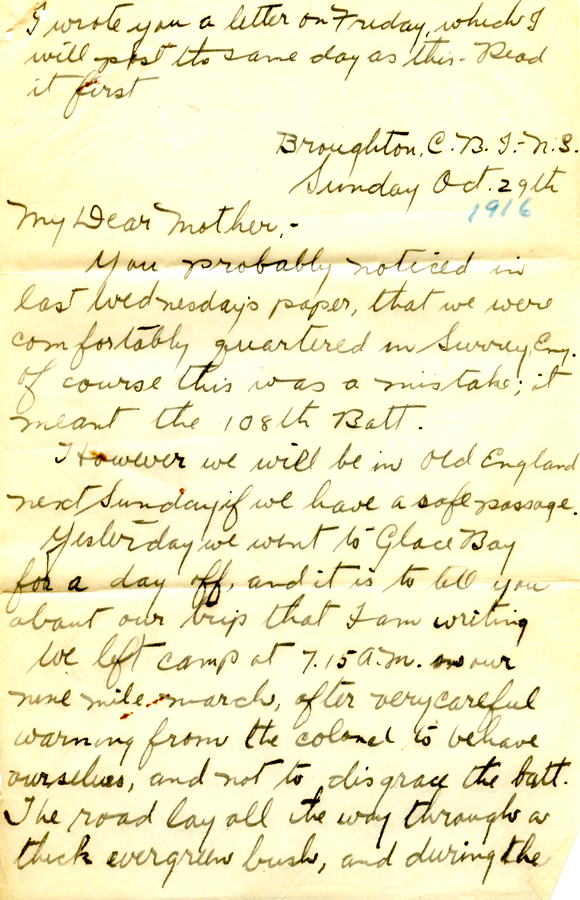 I wrote you a letter on Friday, which I
will post the same day as this. Read
it first
Broughton, C. B. I. - N. S.
Sunday Oct. 29th
1916
My Dear Mother, -
You probably noticed in
last Wednesday's paper, that we were
comfortably quartered in Surrey, Eng.
Of course this was a mistake; it
meant the 108th Batt.
However we will be in Old England
next Sunday if we have a safe passage.
Yesterday we went to Glace Bay
for a day off, and it is to tell you
about our trip that I am writing
We left camp at 7.15 A.M. on our
nine mile march, after very careful
warning from the colonel to behave
ourselves, and not to disgrace the batt.
The road lay all the way through a
thick evergreen bush, and during the